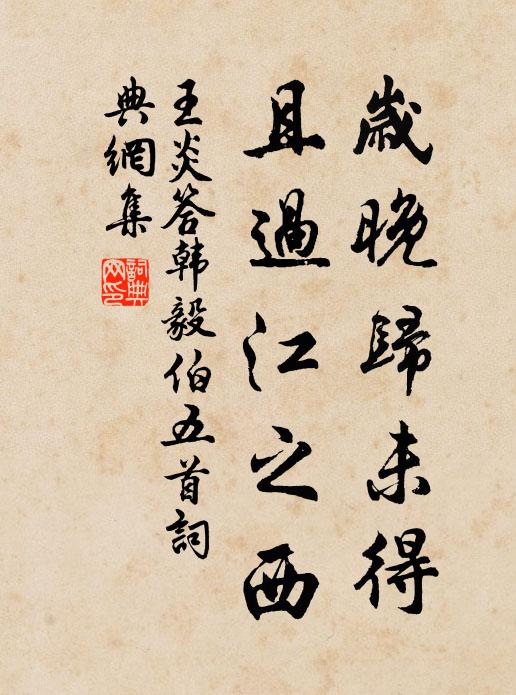 歲晚歸未得
且過江之西
王炎答韩毅伯五首詞
典網集
詞典網印